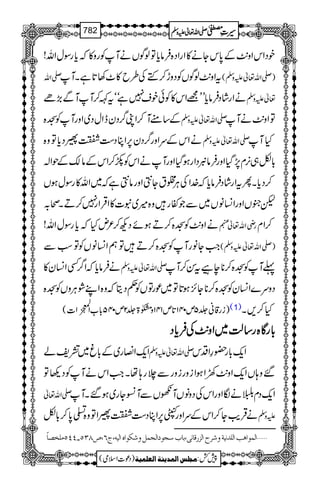 سیرتِ مصطفیٰ صلی اللہ تعالیٰ علیہ وسلم 782
خود اس اونٹ کے پاس جانے کا ارادہ فرمایا تو لوگوں نے آپ کو روکا کہ یارسول اللہ!
(صلی اللہ تعالیٰ علیہ وسلم) یہ اونٹ لوگوں کو دوڑ کر کتے کی طرح کاٹ کھاتا ہے۔ آپ صلی اللہ
تعالیٰ علیہ وسلم نے ارشاد فرمایا ’’مجھے اس کا کوئی خوف نہیں ہے‘‘ یہ کہہ کر آپ آگے بڑھے
تو اونٹ نے آپ صلی اللہ تعالیٰ علیہ وسلم کے سامنے آ کر اپنی گردن ڈال دی اور آپ کو سجدہ
کیا آپ صلی اللہ تعالیٰ علیہ وسلم نے اس کے سر اور گردن پر اپنا دست شفقت پھیر دیا تو وہ
بالکل ہی نرم پڑ گیا اور فرمانبردار ہو گیا اور آپ نے اس کو پکڑ کر اس کے مالک کے حوالہ
کر دیا۔ پھر یہ ارشاد فرمایا کہ خدا کی ہر مخلوق جانتی اور مانتی ہے کہ میں اللہ کا رسول ہوں
لیکن جنوں اور انسانوں میں سے جو کفار ہیں وہ میری نبوت کا اقرار نہیں کرتے۔ صحابہ
کرام رضی اللہ تعالیٰ عنہم نے اونٹ کو سجدہ کرتے ہوئے دیکھ کر عرض کیا کہ یا رسول اللہ!
(صلی اللہ تعالیٰ علیہ وسلم) جب جانور آپ کو سجدہ کرتے ہیں تو ہم انسانوں کو تو سب سے
پہلے آپ کو سجدہ کرنا چاہیے یہ سن کر آپ صلی اللہ تعالیٰ علیہ وسلم نے فرمایا کہ اگر کسی انسان کا
دوسرے انسان کو سجدہ کرنا جائز ہوتا تو میں عورتوں کو حکم دیتا کہ وہ اپنے شوہروں کو سجدہ
کیا کریں۔(1) (زرقانی جلد ۵ ص ۱۴۰ تا ص ۱۴۱ و مشکوٰۃ جلد ۲ ص ۵۴۰ باب المعجزات)
بارگاہ رسالت میں اونٹ کی فریاد
ایک بار حضور اقدس صلی اللہ تعالیٰ علیہ وسلم ایک انصاری کے باغ میں تشریف لے
گئے وہاں ایک اونٹ کھڑا ہوا زور زور سے چلا رہا تھا۔ جب اس نے آپ کو دیکھا تو
ایک دم بلبلانے لگا اور اس کی دونوں آنکھوں سے آنسو جاری ہو گئے۔ آپ صلی اللہ تعالیٰ
علیہ وسلم نے قریب جا کر اس کے سر اور کنپٹی پر اپنا دست شفقت پھیرا تو وہ تسلی پا کر بالکل
......المواہب اللدنیة وشرح الزرقانی، باب سجود الجمل وشکواہ الیہ، ج ۶، ص ۵۳۸-۵۴۴ ملخصاً
پیش کش: مجلس المدینة العلمیة (دعوتِ اسلامی)